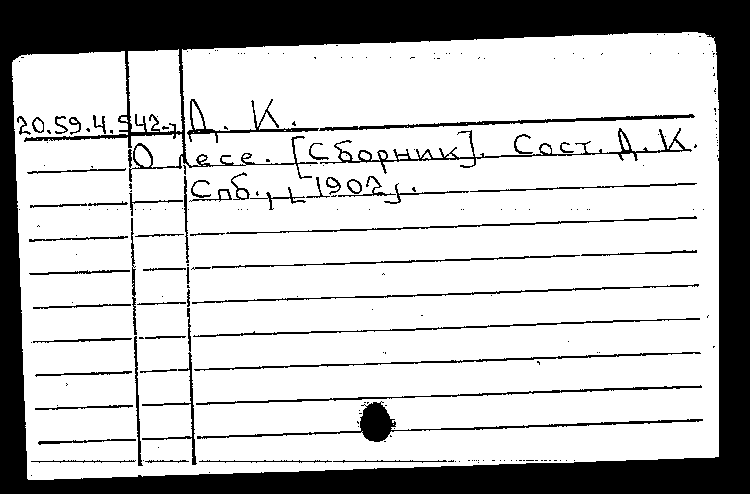 20.59.4.942-7 Д. К.
О лесе. [Сборник]. Сост. Д. К.
Спб., [1902].